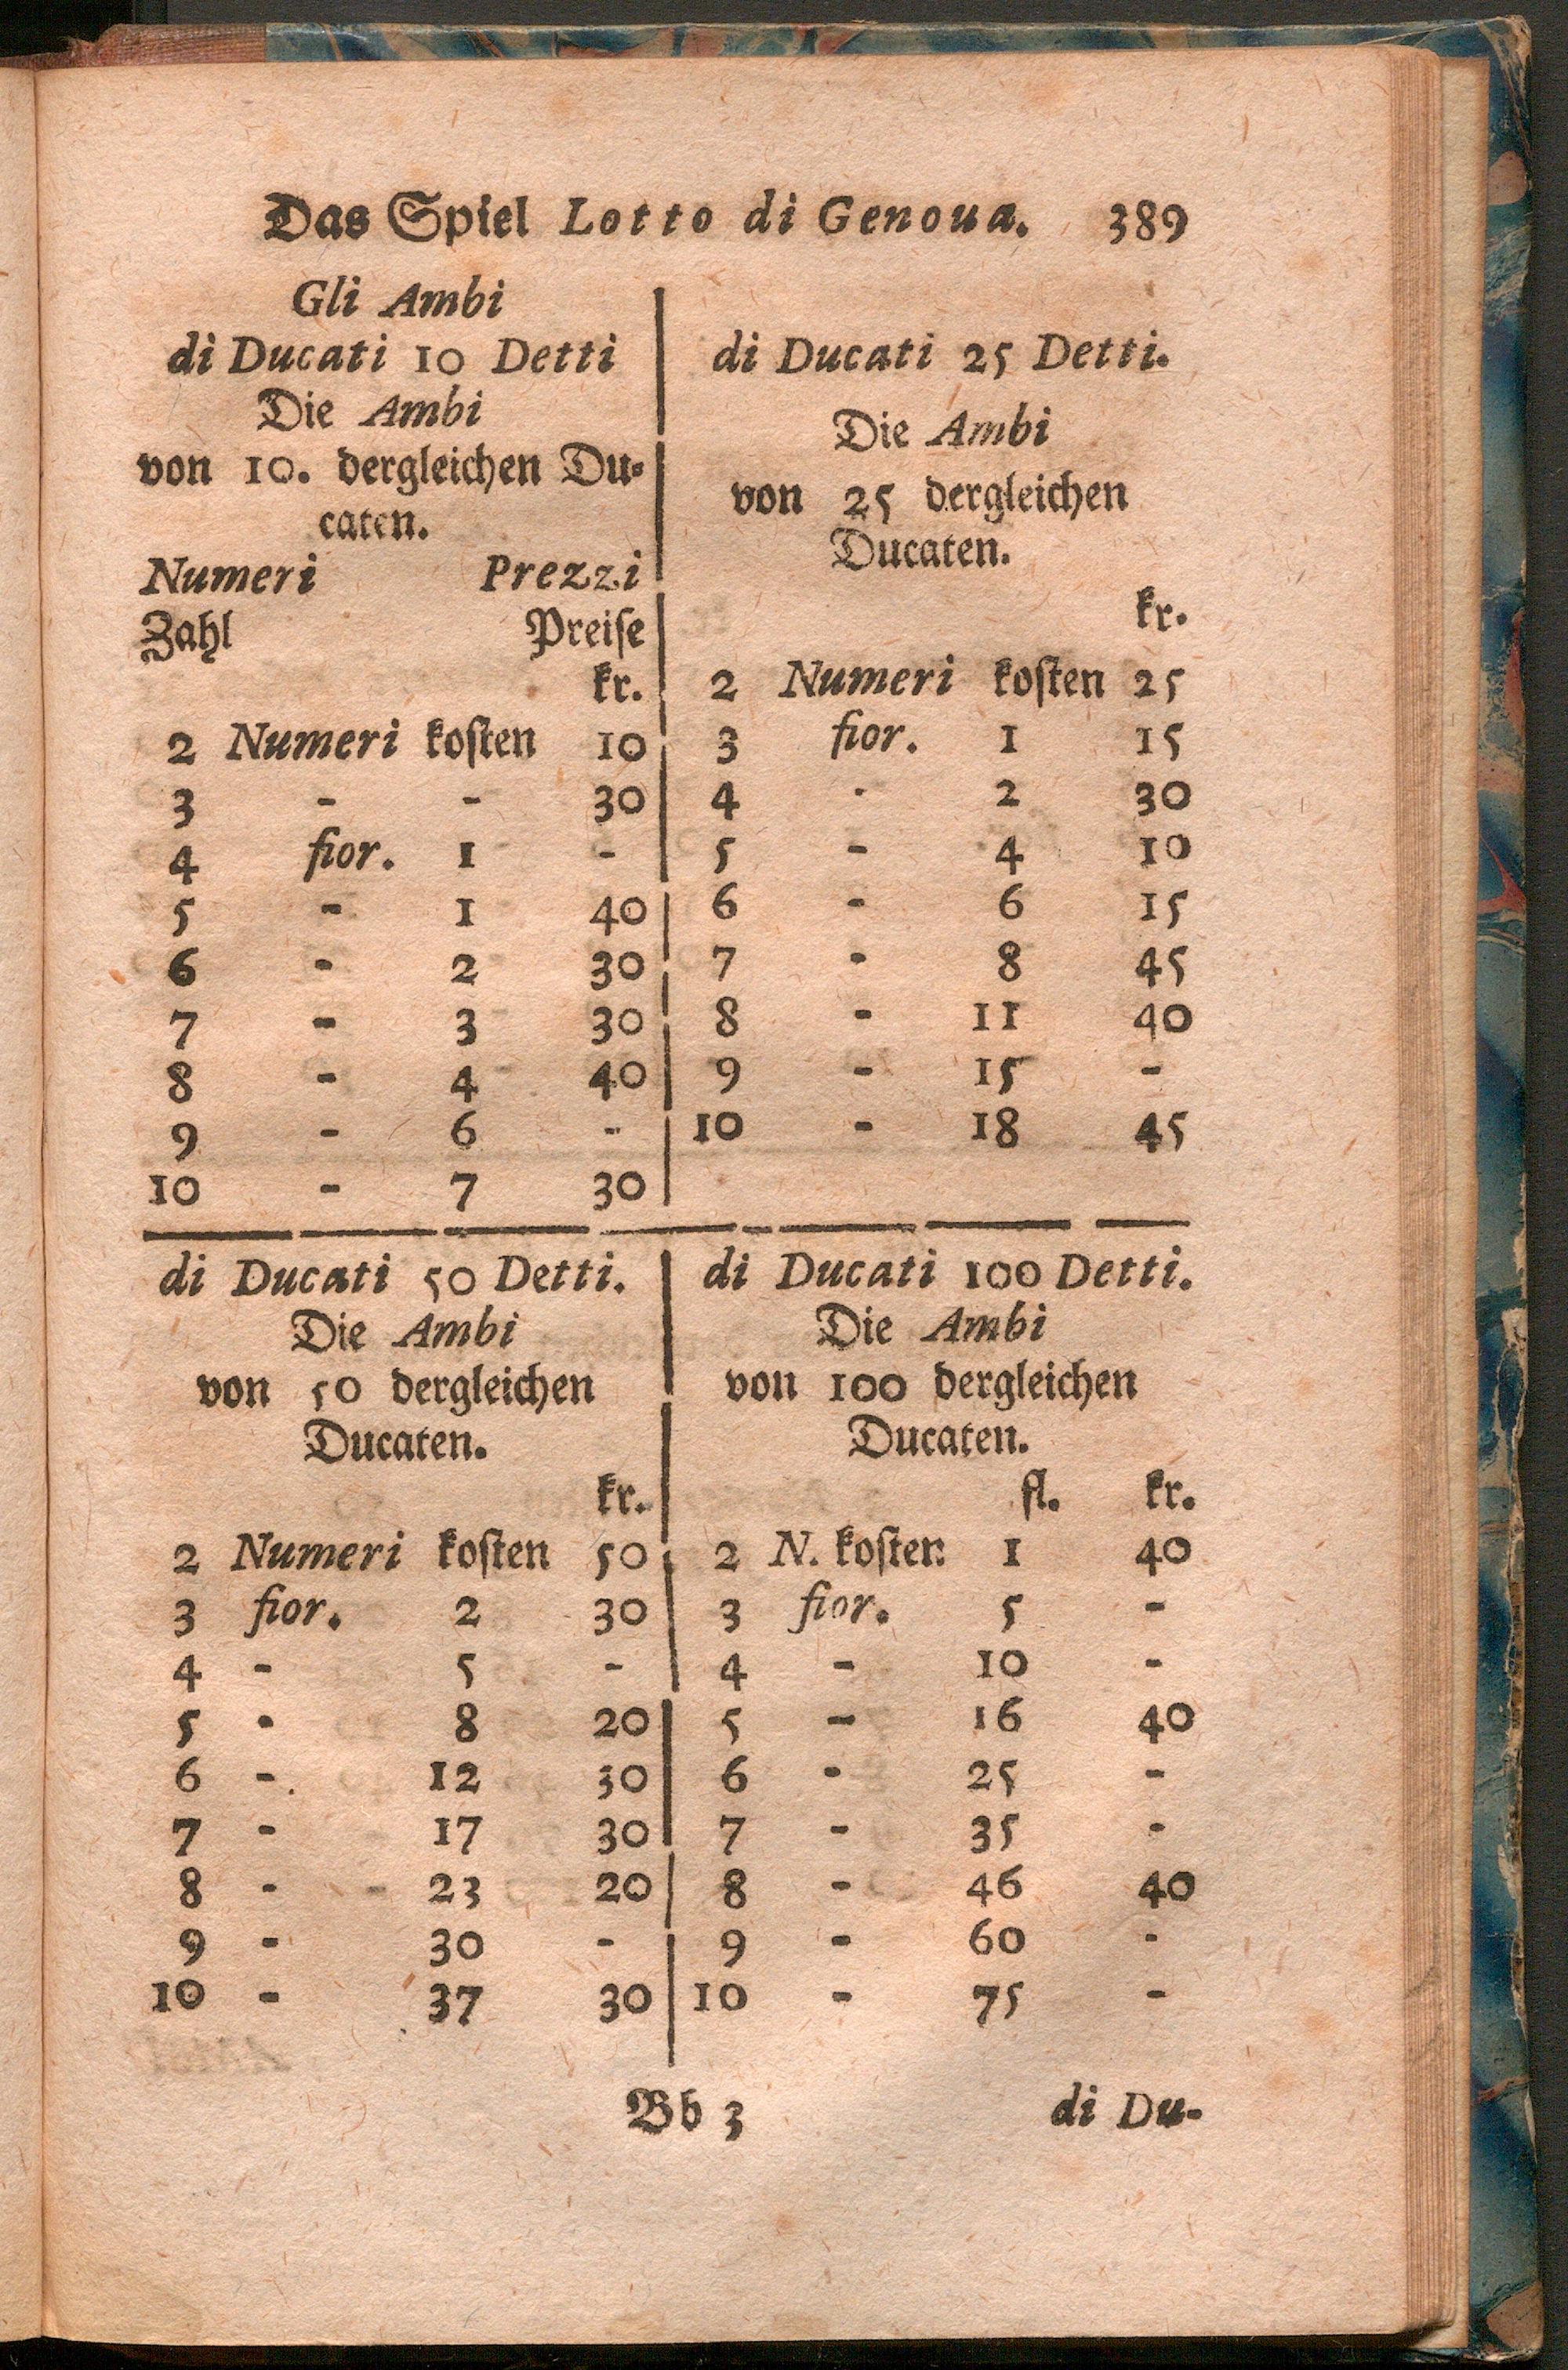 Das Spiel Lotto di Genoua. 389
Gli Ambi
di Ducati 10 Detti
Die Ambi
von 10. dergleichen Du-
caten.
Numeri Prezzi
Zahl Preiſe
kr.
2 Numeri koſten 10
3 - - 30
4 fior. 1 -
5 - 1 40
6 - 2 30
7 - 3 30
8 - 4 40
9 - 6 -
10 - 7 30
di Ducati 25 Detti.
Die Ambi
von 25 dergleichen
Ducaten.
kr.
2 Numeri koſten 25
3 fior. 1 15
4 - 2 30
5 - 4 10
6 - 6 15
7 - 8 45
8 - 11 40
9 - 15 -
10 - 18 45
di Ducati 50 Detti.
Die Ambi
von 50 dergleichen
Ducaten.
kr.
2 Numeri koſten 50
3 fior. 2 30
4 - 5 -
5 - 8 20
6 - 12 30
7 - 17 30
8 - 23 20
9 - 30 -
10 - 37 30
di Ducati 100 Detti.
Die Ambi
von 100 dergleichen
Ducaten.
fl. kr.
2 N. koſten 1 40
3 fior. 5 -
4 - 10 -
5 - 16 40
6 - 25 -
7 - 35 -
8 - 46 40
9 - 60 -
10 - 75 -
Bb 3 di Du-